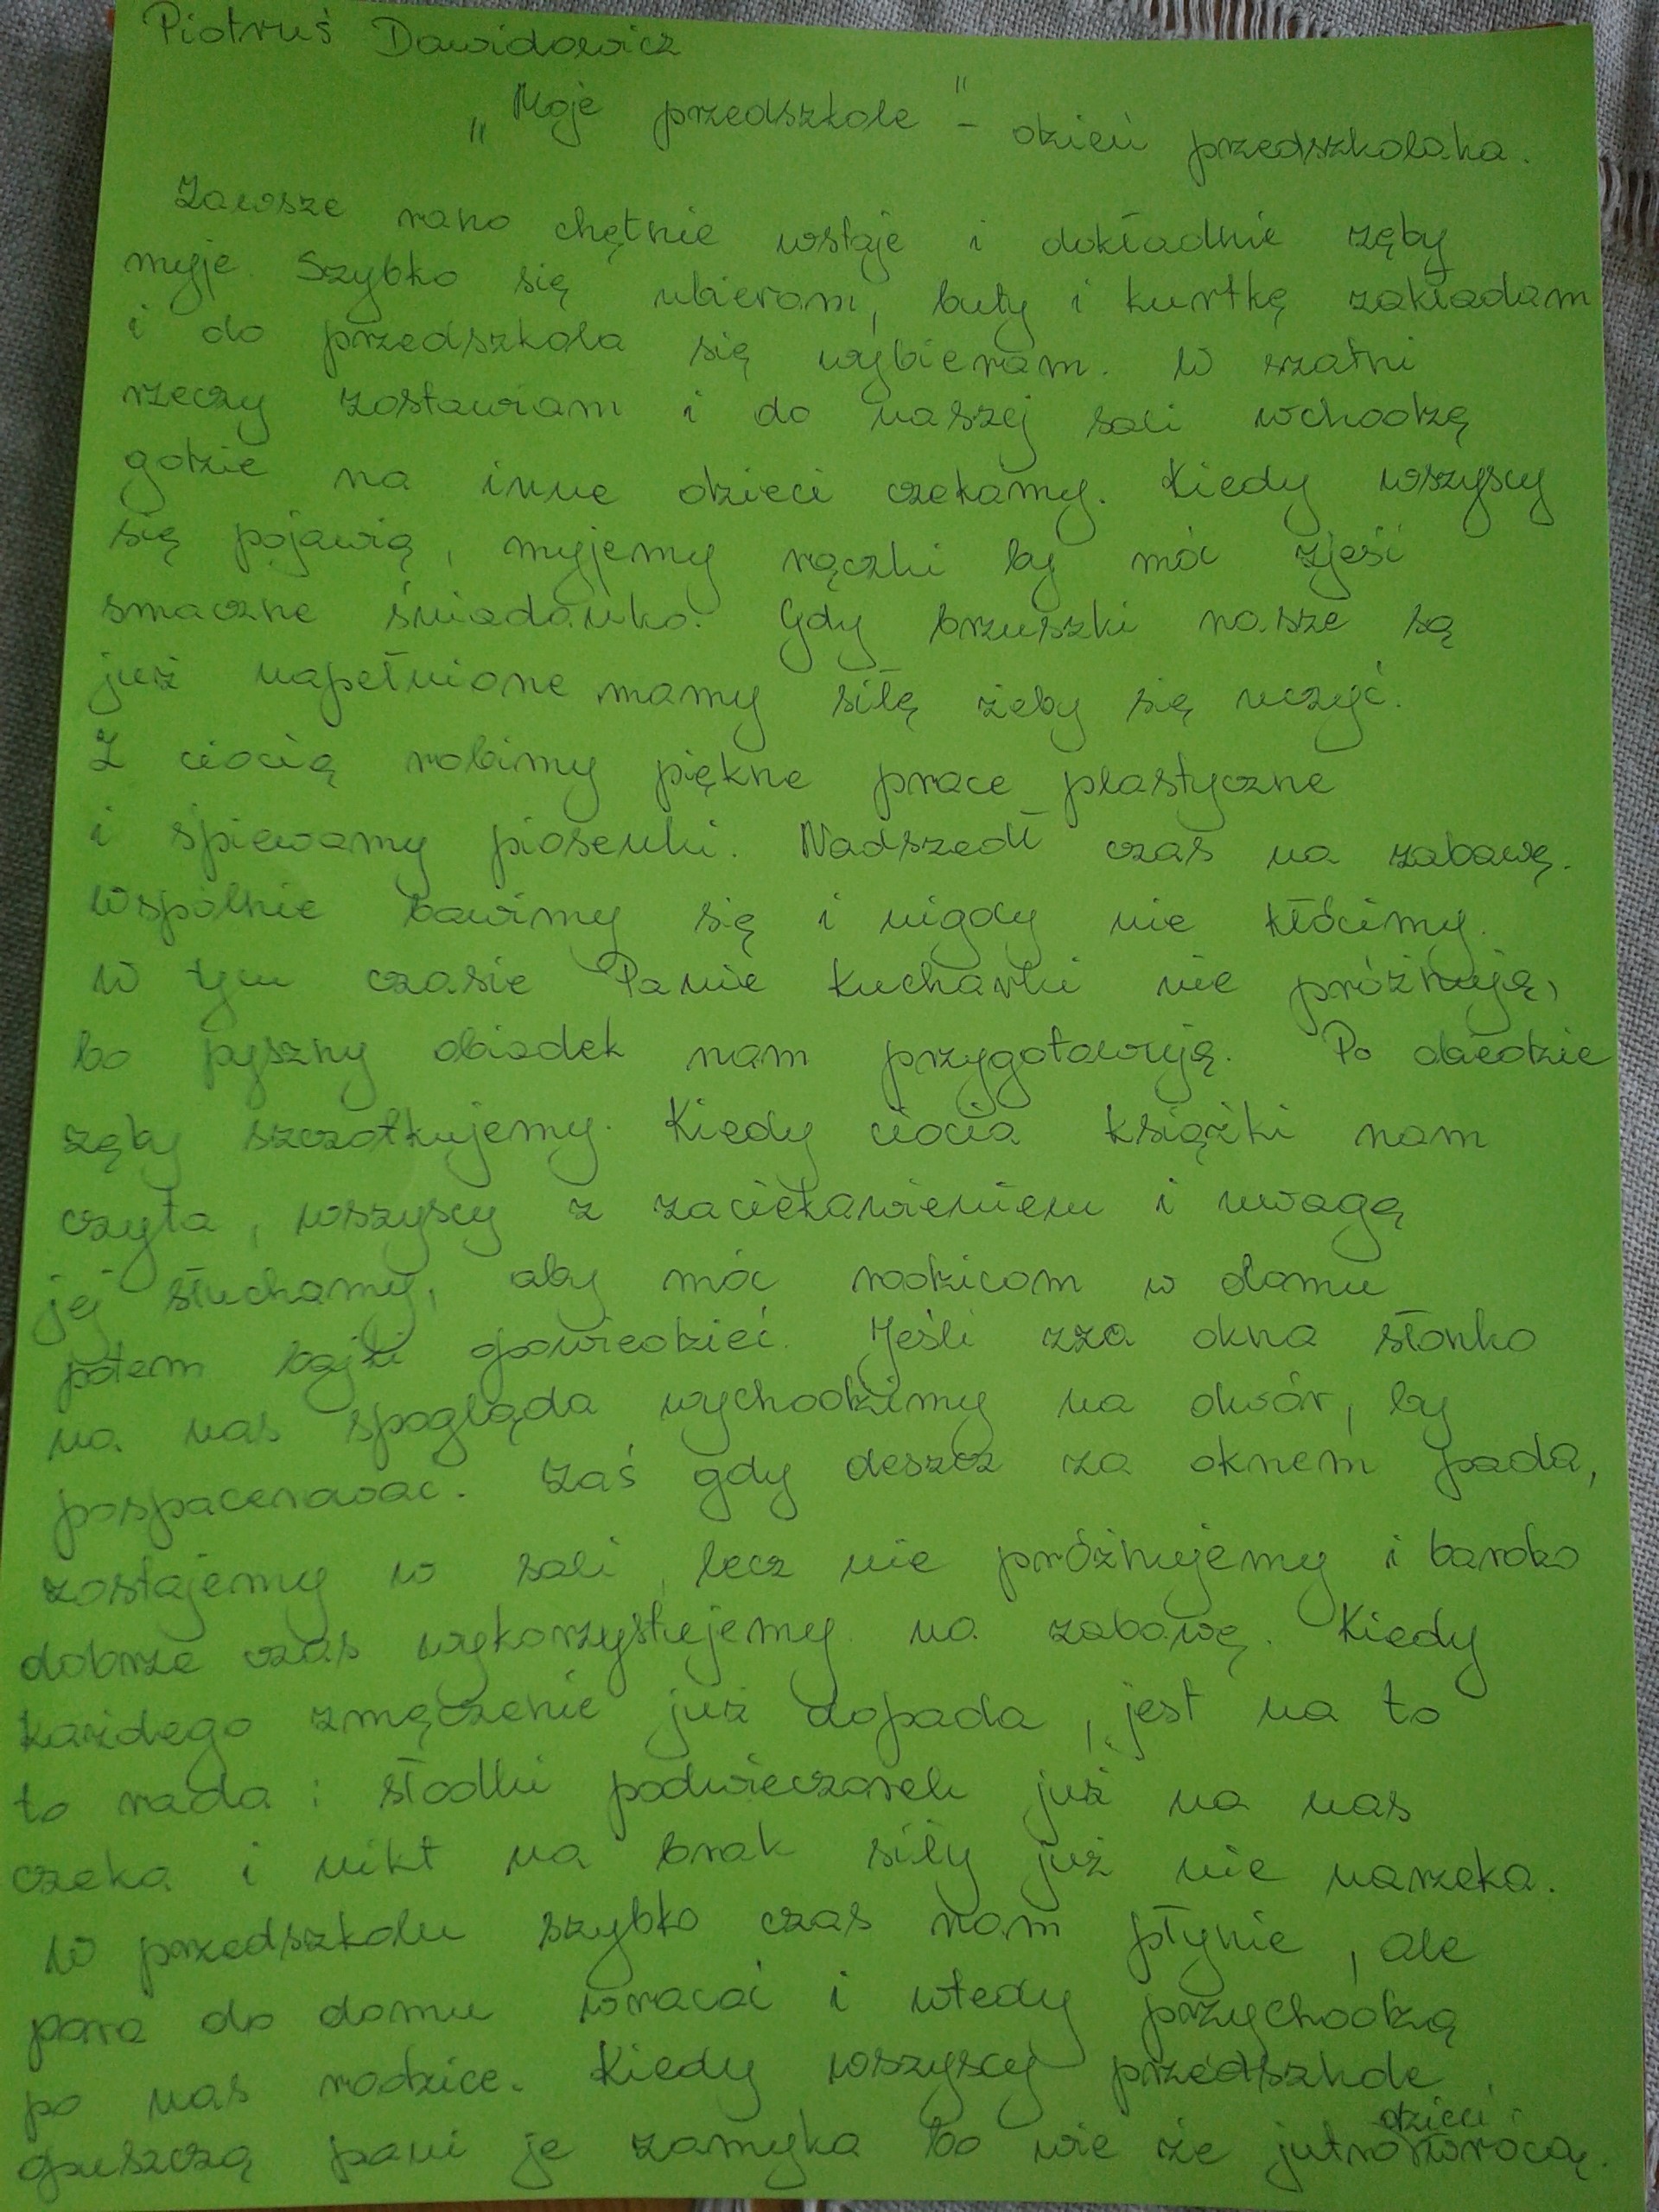 Piotruś Dawidowicz
„Moje przedszkole" - dzień przedszkolaka.
Zawsze rano chętnie wstaje i dokładnie zęby
myje. Szybko się ubieram, buty i kurtkę zakładam
i do przedszkola się wybieram. W szatni
rzeczy zostawiam i do naszej sali wchodzę
gdzie na inne dzieci czekamy. Kiedy wszyscy
się pojawią, myjemy rączki by móc zjeść
smaczne śniadanko. Gdy brzuszki nasze są
już napełnione mamy siłę żeby się uczyć.
Z ciocią robimy piękne prace plastyczne
i śpiewamy piosenki. Nadszedł czas na zabawę.
Wspólnie bawimy się i nigdy nie kłócimy.
W tym czasie Panie Kucharki nie próżnują,
bo pyszny obiadek nam przygotowują. Po obiedzie
zęby szczotkujemy. Kiedy ciocia książki nam
czyta, wszyscy z zaciekawieniem i uwagą
jej słuchamy, aby móc rodzicom w domu
potem bajki opowiedzieć. Jeśli zza okna słonko
na nas spogląda wychodzimy na dwór, by
pospacerować. Zaś gdy deszcz za oknem pada,
zostajemy w sali, lecz nie próżnujemy i bardzo
dobrze czas wykorzystujemy na zabawę. Kiedy
każdego zmęczenie już dopada, jest na to
to rada: słodki podwieczorek już na nas
czeka i nikt na brak siły już nie narzeka.
W przedszkolu szybko czas nam płynie, ale
pora do domu wracać i wtedy przychodzą
po nas rodzice. Kiedy wszyscy przedszkole
opuszczą pani je zamyka bo wie że jutro dzieci wrócą.